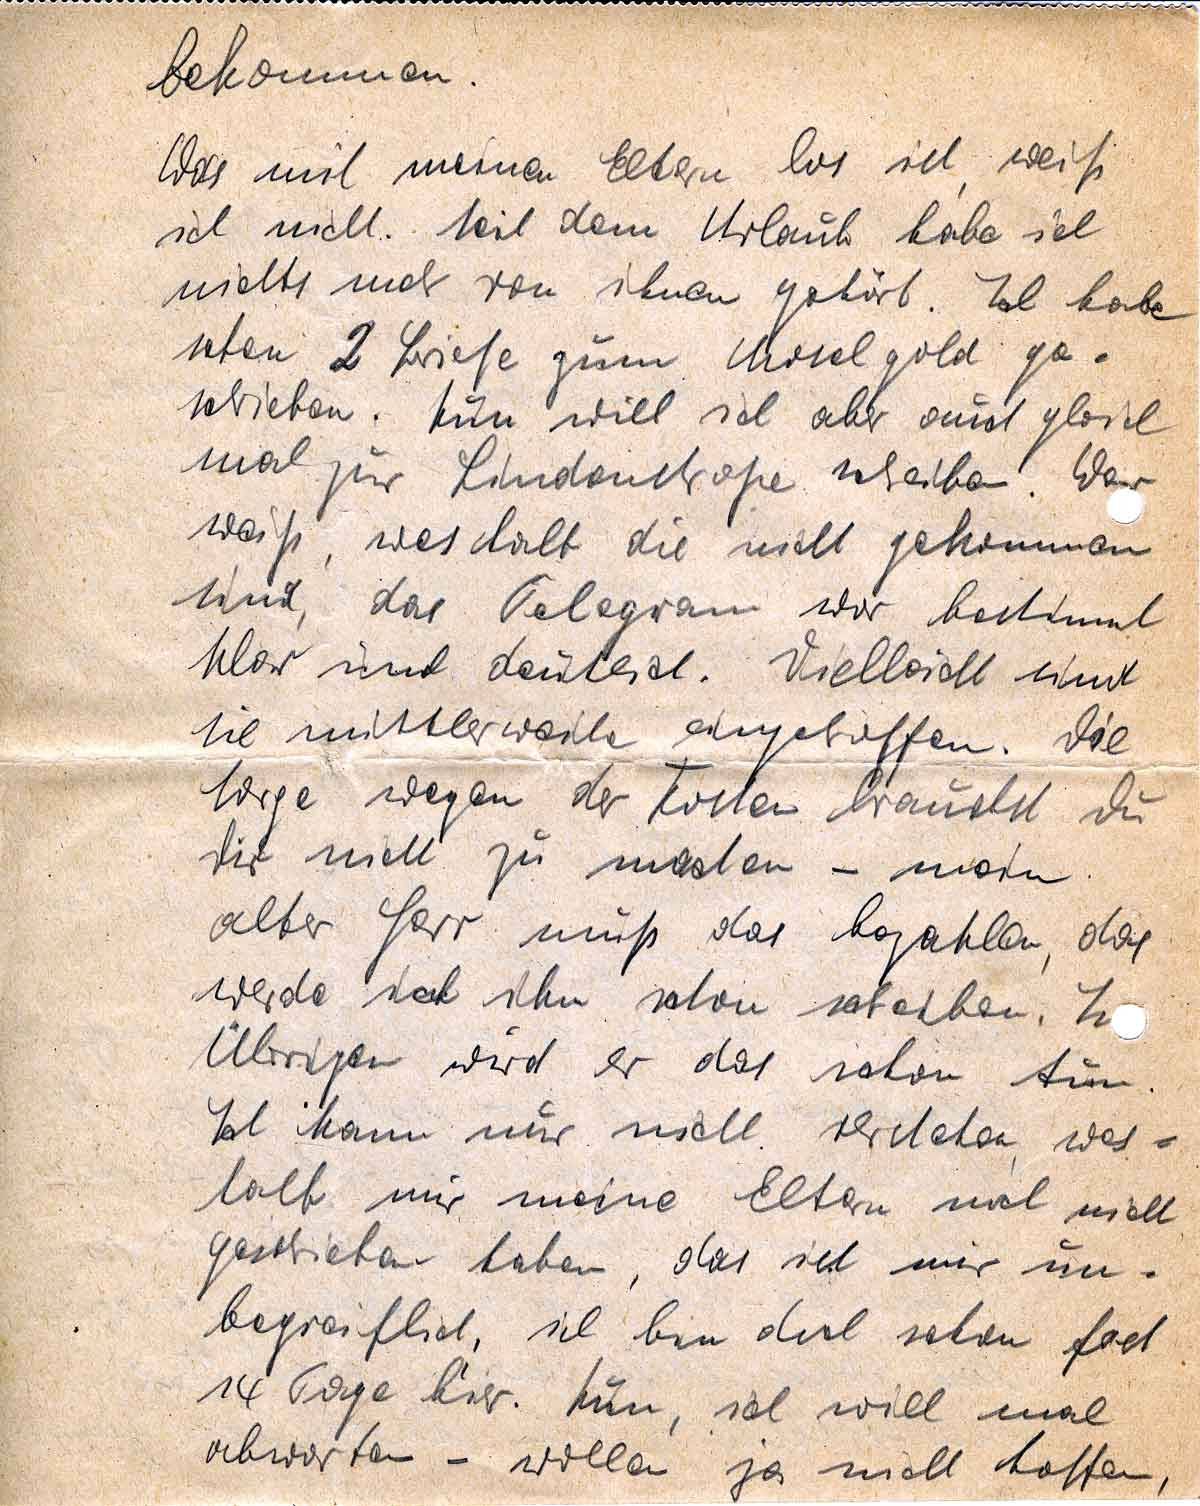 bekommen.
Was mit meinen Eltern los ist, weiß
ich nicht. Seit dem Urlaub habe ich
nichts mehr von ihnen gehört. Ich habe
schon 2 Briefe zum Moselgold ge-
schrieben. Nun will ich aber auch gleich
mal zur Lindenstraße schreiben. Wer
weiß, weshalb die nicht gekommen
sind, das Telegram war bestimmt
klar und deutlich. Vielleicht sind
sie mittlerweile eingetroffen. Die
Sorge wegen der Kosten brauchst Du
Dir nicht zu machen – mein
alter Herr muß das bezahlen, das
werde ich ihm schon schreiben. Im
Übrigen wird er das schon tun.
Ich kann nur nicht verstehen, wes-
halb mir meine Eltern noch nicht
geschrieben haben, das ist mir un-
begreiflich, ich bin doch schon fast
14 Tage hier. Nun, ich will mal
abwarten – wollen ja nicht hoffen,